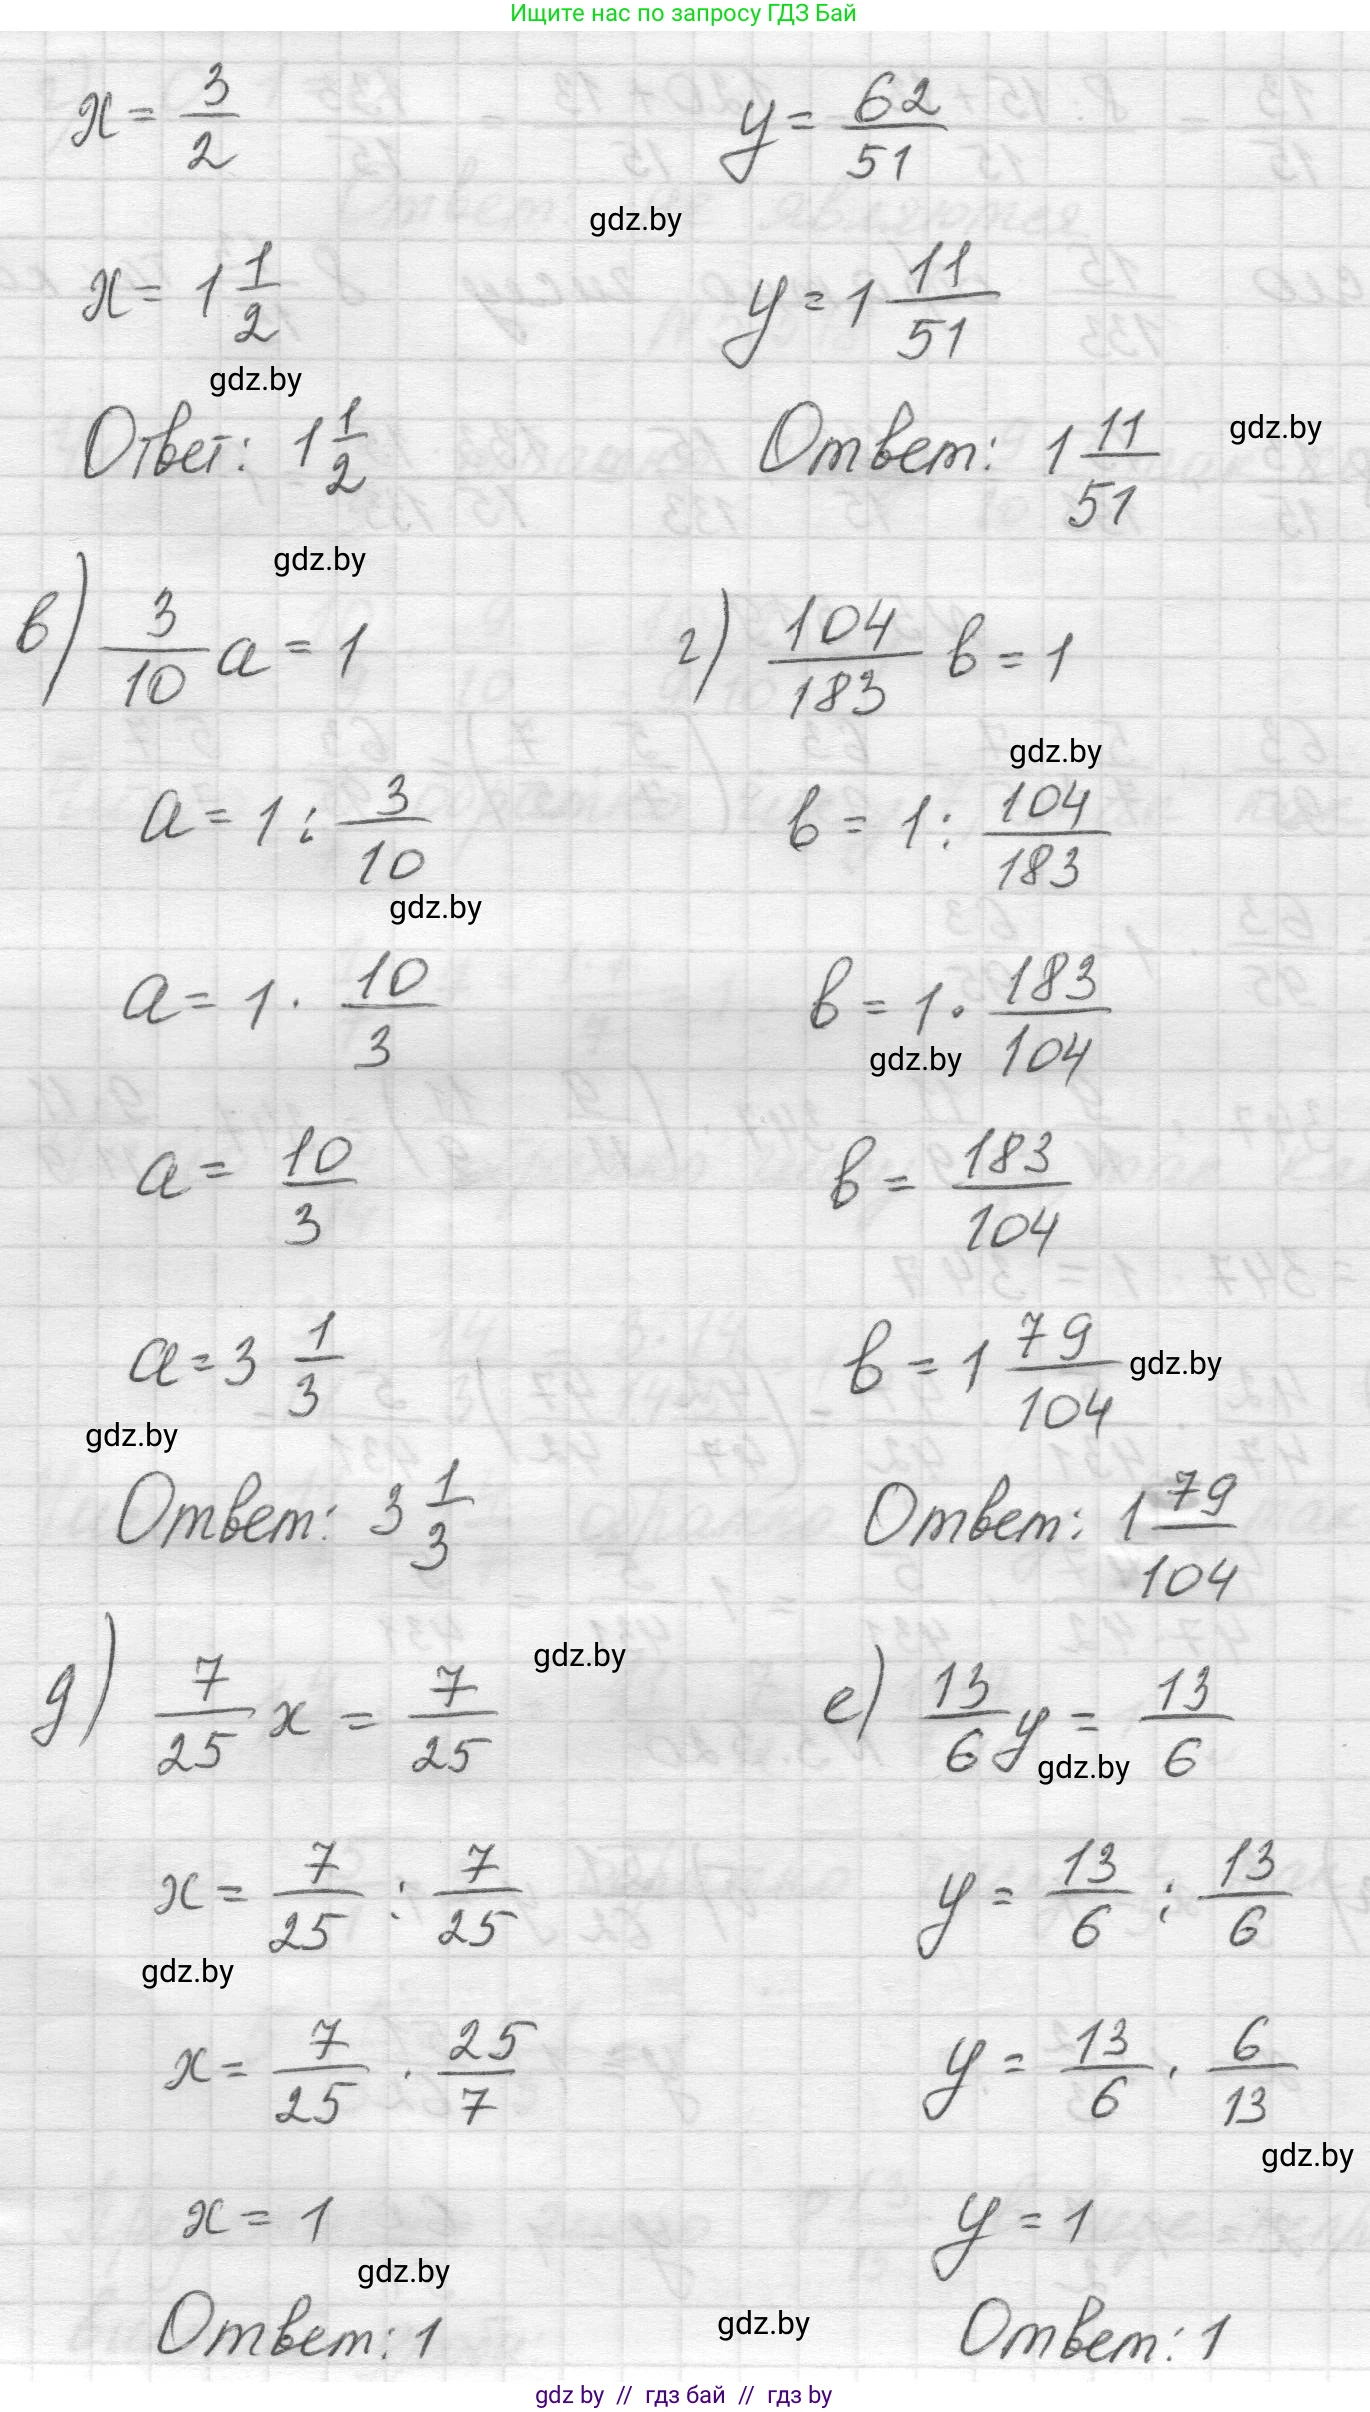 Ищите нас по запросу ГДЗ Бай
x = 3/2
y = 62/51
gdz.by
x = 1 1/2
y = 1 11/51
gdz.by
Ответ: 1 1/2
Ответ: 1 11/51
gdz.by
gdz.by
в) 3/10 a = 1
г) 104/183 в = 1
gdz.by
a = 1 : 3/10
в = 1 : 104/183
gdz.by
a = 1 · 10/3
в = 1 · 183/104
gdz.by
a = 10/3
в = 183/104
a = 3 1/3
в = 1 79/104
gdz.by
gdz.by
Ответ: 3 1/3
Ответ: 1 79/104
gdz.by
д) 7/25 x = 7/25
е) 13/6 y = 13/6
gdz.by
x = 7/25 : 7/25
y = 13/6 : 13/6
gdz.by
x = 7/25 · 25/7
y = 13/6 · 6/13
gdz.by
x = 1
y = 1
gdz.by
Ответ: 1
gdz.by
Ответ: 1
gdz by // гдз бай // гдз by